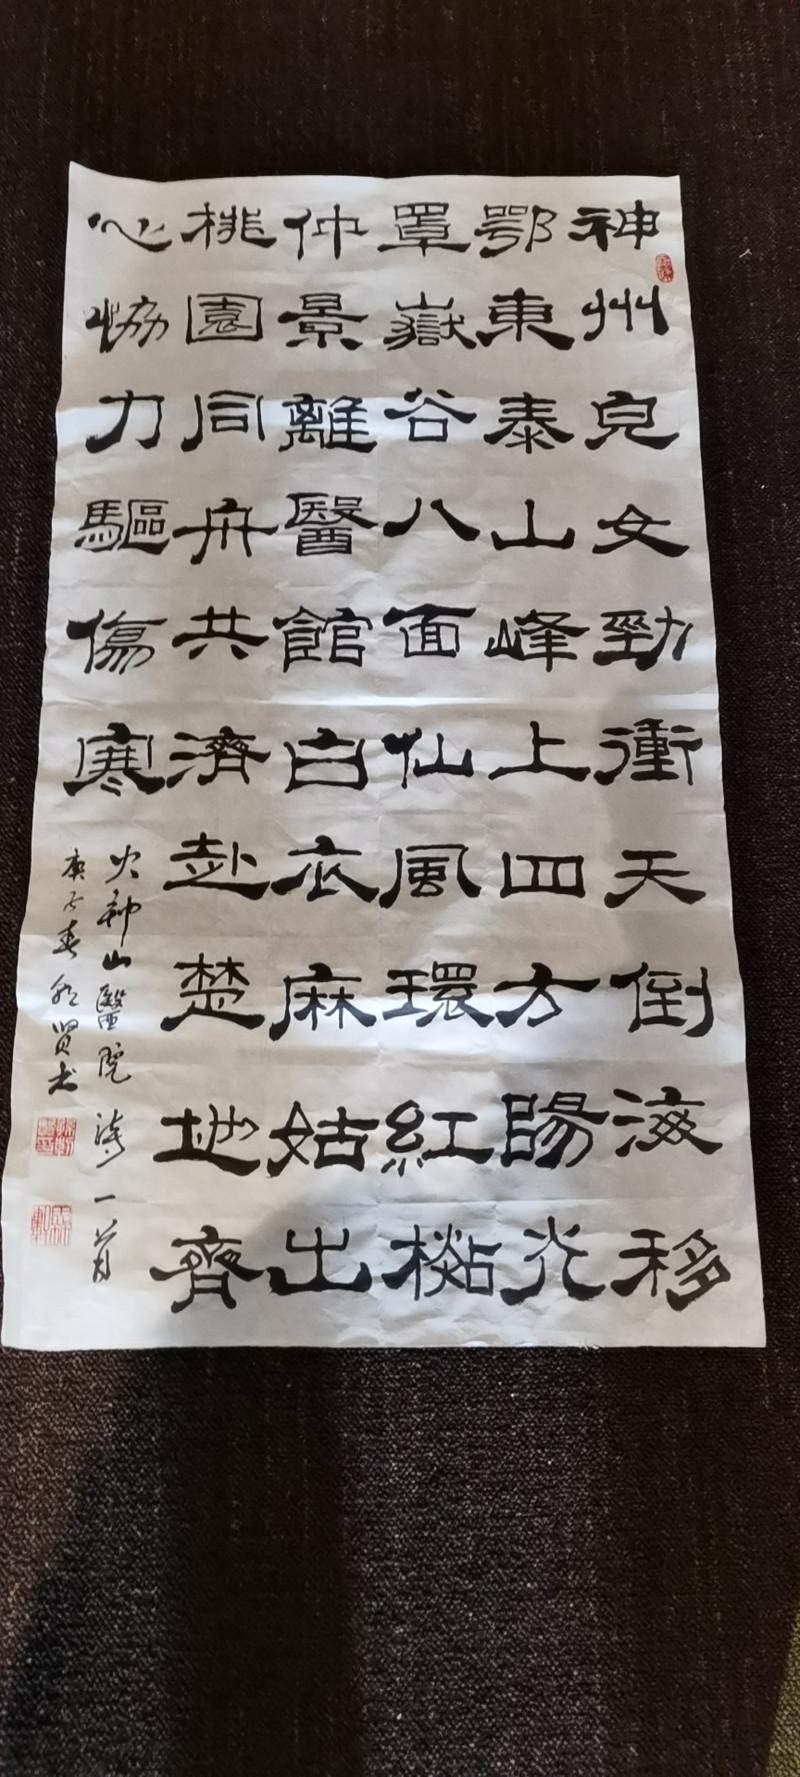 神州皃女勁衝天倒海移
鄂東泰山峰上四方陽光
罩嶽谷八面仙風環紅樾
仲景離醫館白衣麻姑出
桃園同舟共濟赴楚地齊
心協力驅傷寒
火神山醫院 詩一首
庚子春 賢書